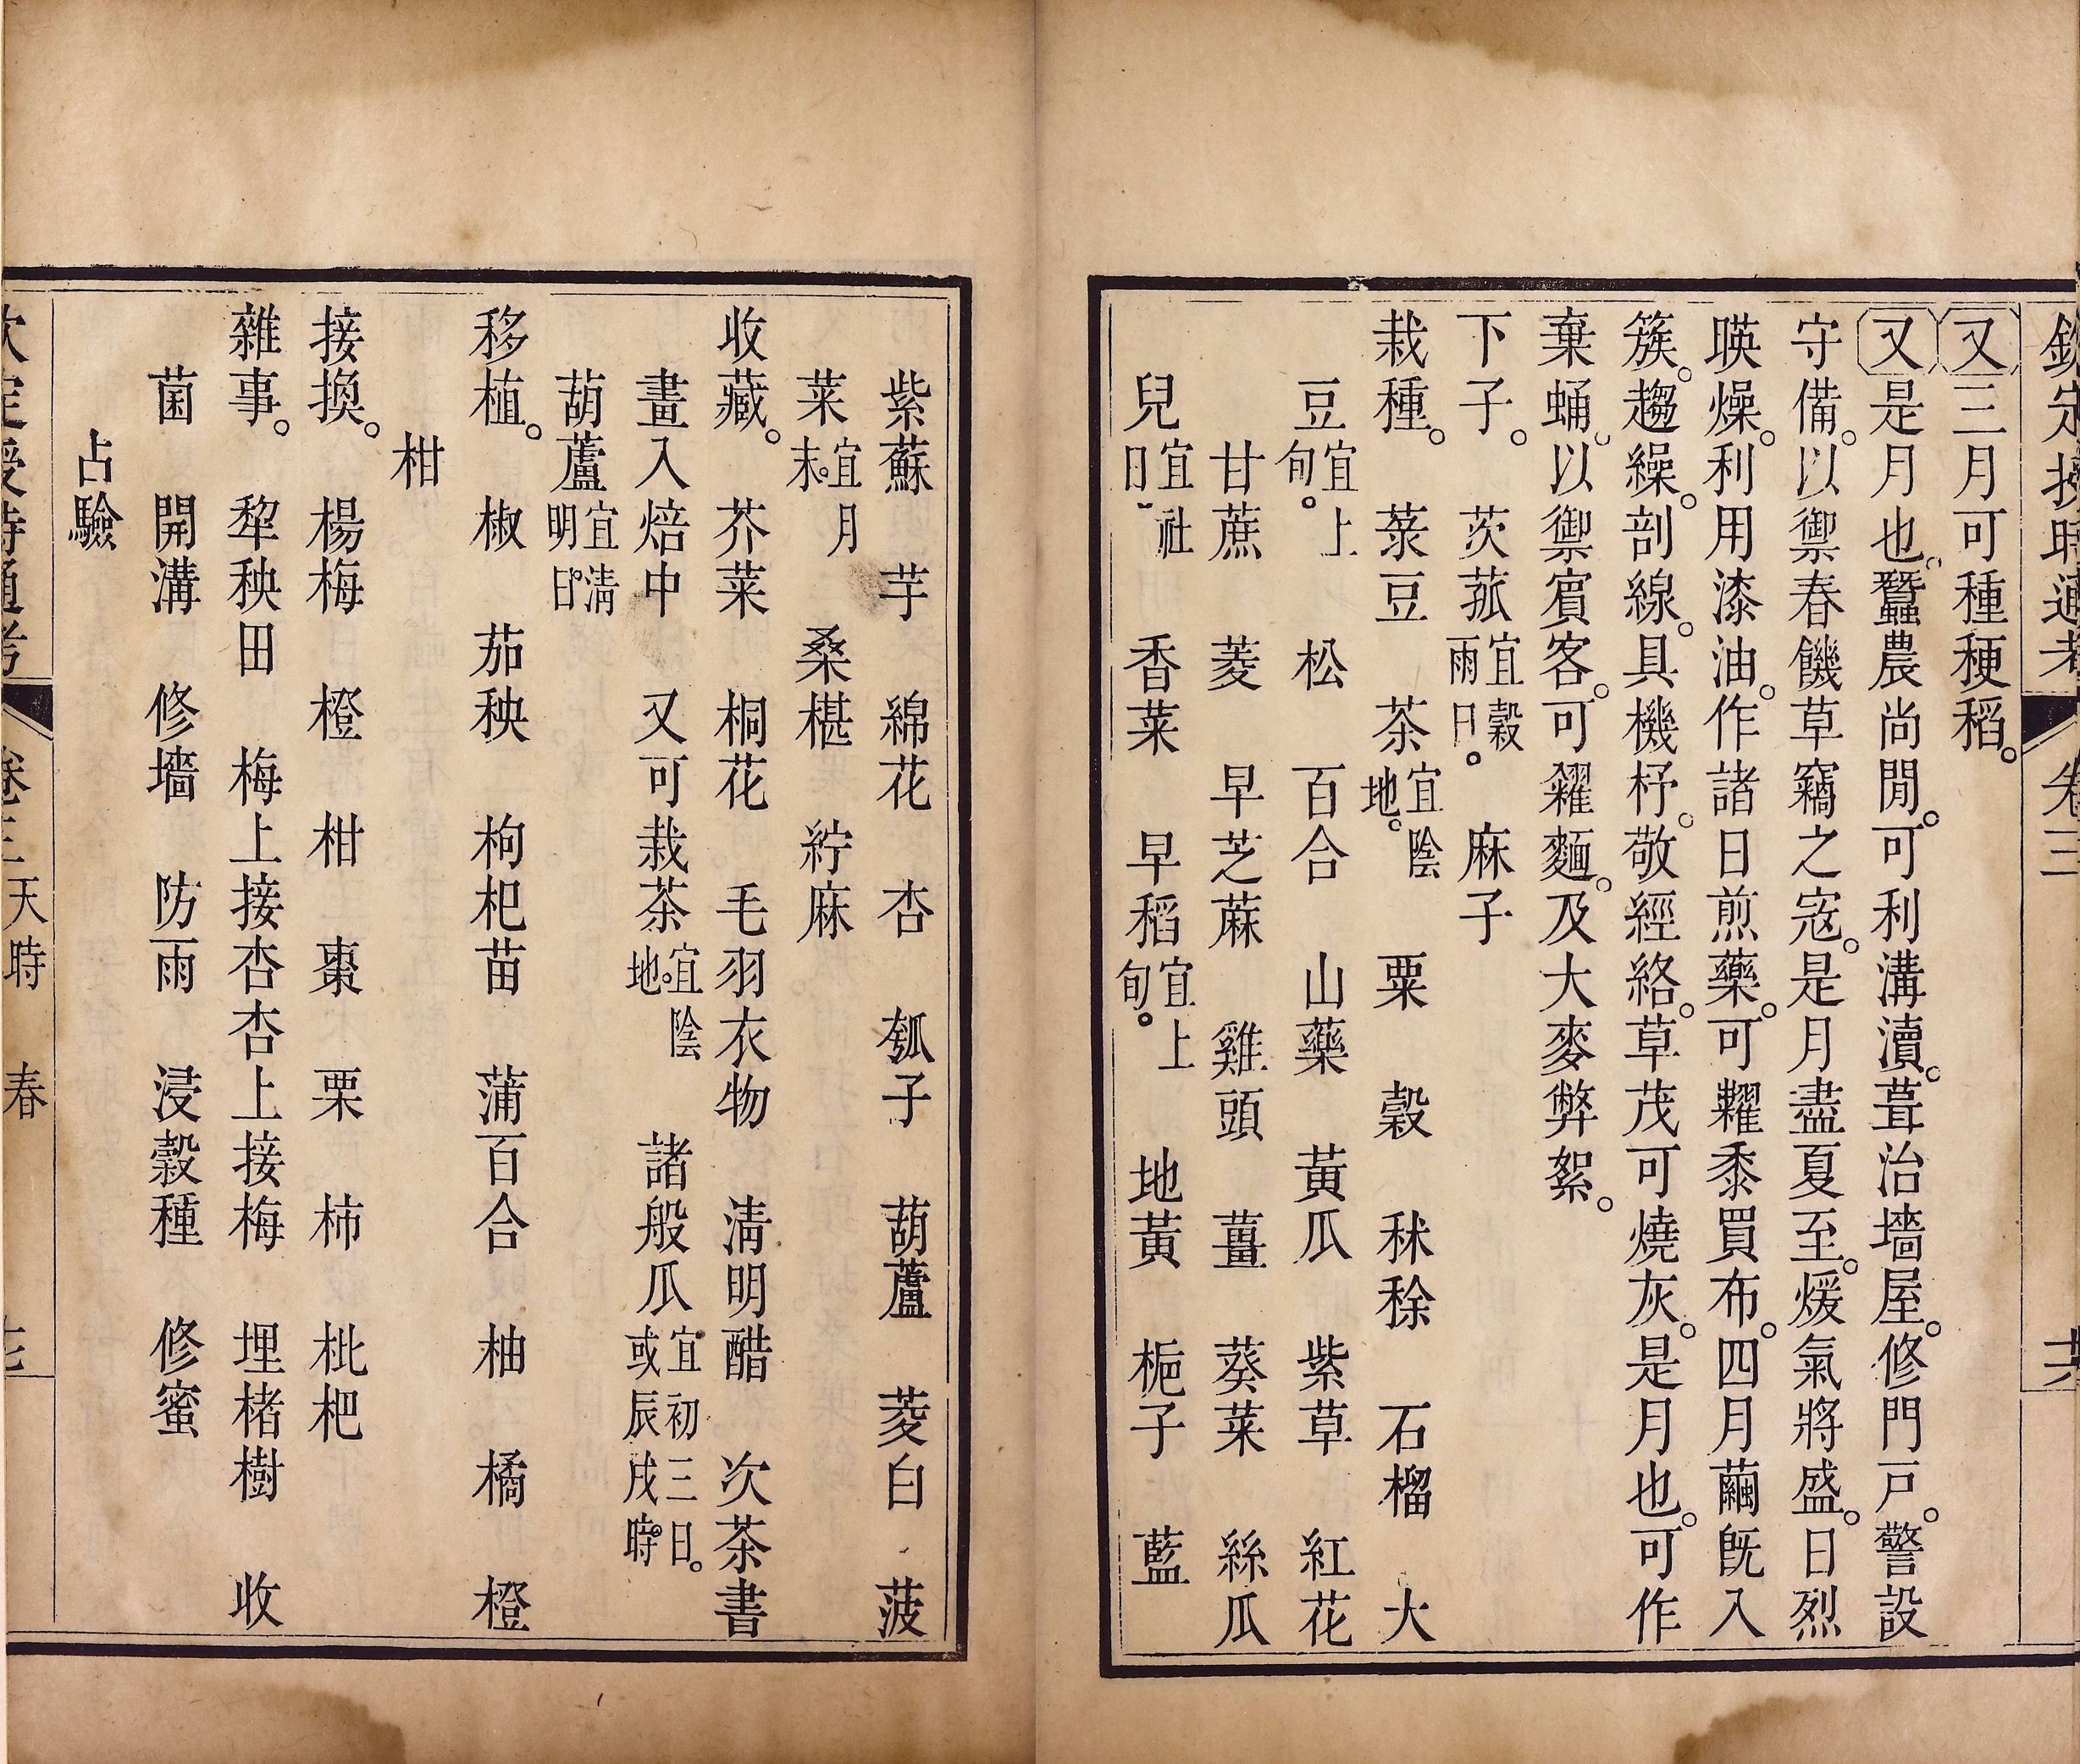 欽定授時通考 卷三 六
又三月可種稉稻。
又是月也。蠶農尚閒。可利溝瀆。葺治墻屋。修門戸。警設
守備。以禦春饑草竊之寇。是月盡夏至。煖氣將盛。日烈
暎燥。利用漆油。作諸日煎藥。可糶黍買布。四月繭旣入
簇。趨繰。剖線。具機杼。敬經絡。草茂可燒灰。是月也。可作
棄蛹。以禦賓客。可糴麵。及大麥弊絮。
下子。 茨菰宜穀雨日。 麻子
栽種。 菉豆 茶宜陰地。 粟 穀 秫稌 石榴 大
豆宜上旬。 松 百合 山藥 黃瓜 紫草 紅花
甘蔗 菱 早芝蔴 雞頭 薑 葵菜 絲瓜
兒宜社日、 香菜 早稻宜上旬。 地黃 梔子 藍
紫蘇 芋 綿花 杏 瓠子 葫蘆 菱白 菠
菜宜月末。 桑椹 紵麻
收藏。 芥菜 桐花 毛羽衣物 淸明醋 次茶書
畫入焙中 又可栽茶宜陰地。 諸般瓜宜初三日。或辰戌時。
葫蘆宜淸明日。
移植。 椒 茄秧 枸杞苗 蒲百合 柚 橘 橙
柑
接換。 楊梅 橙 柑 棗 栗 柿 枇杷
雜事。 犂秧田 梅上接杏杏上接梅 埋楮樹 收
菌 開溝 修墻 防雨 浸穀種 修蜜
占驗
欽定授時通考 卷三天時 春 七